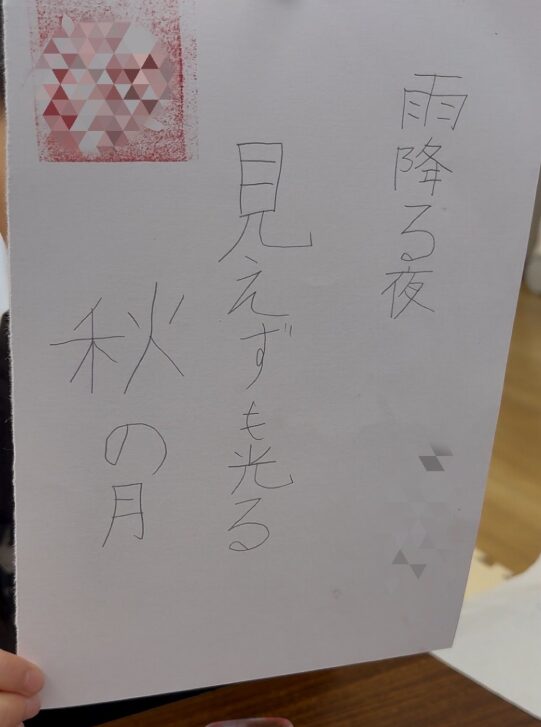 雨降る夜
見えずも光る
秋の月